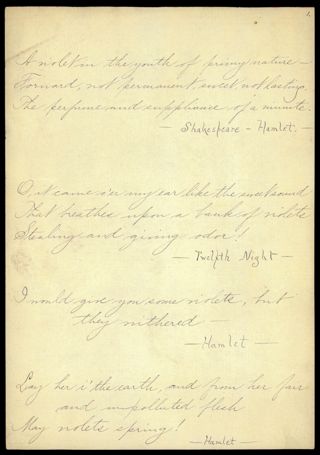 1.
A violet in the youth of primy nature —
Forward, not permanent, sweet, not lasting,
The perfume and suppliance of a minute.
— Shakespeare - Hamlet. —
O, it came o'er my ear like the sweet sound
That breathes upon a bank of violets
Stealing and giving odor!
— Twelfth Night —
I would give you some violets, but
they withered —
— Hamlet —
Lay her i' the earth, and from her fair
and unpolluted flesh
May violets spring!
— Hamlet —